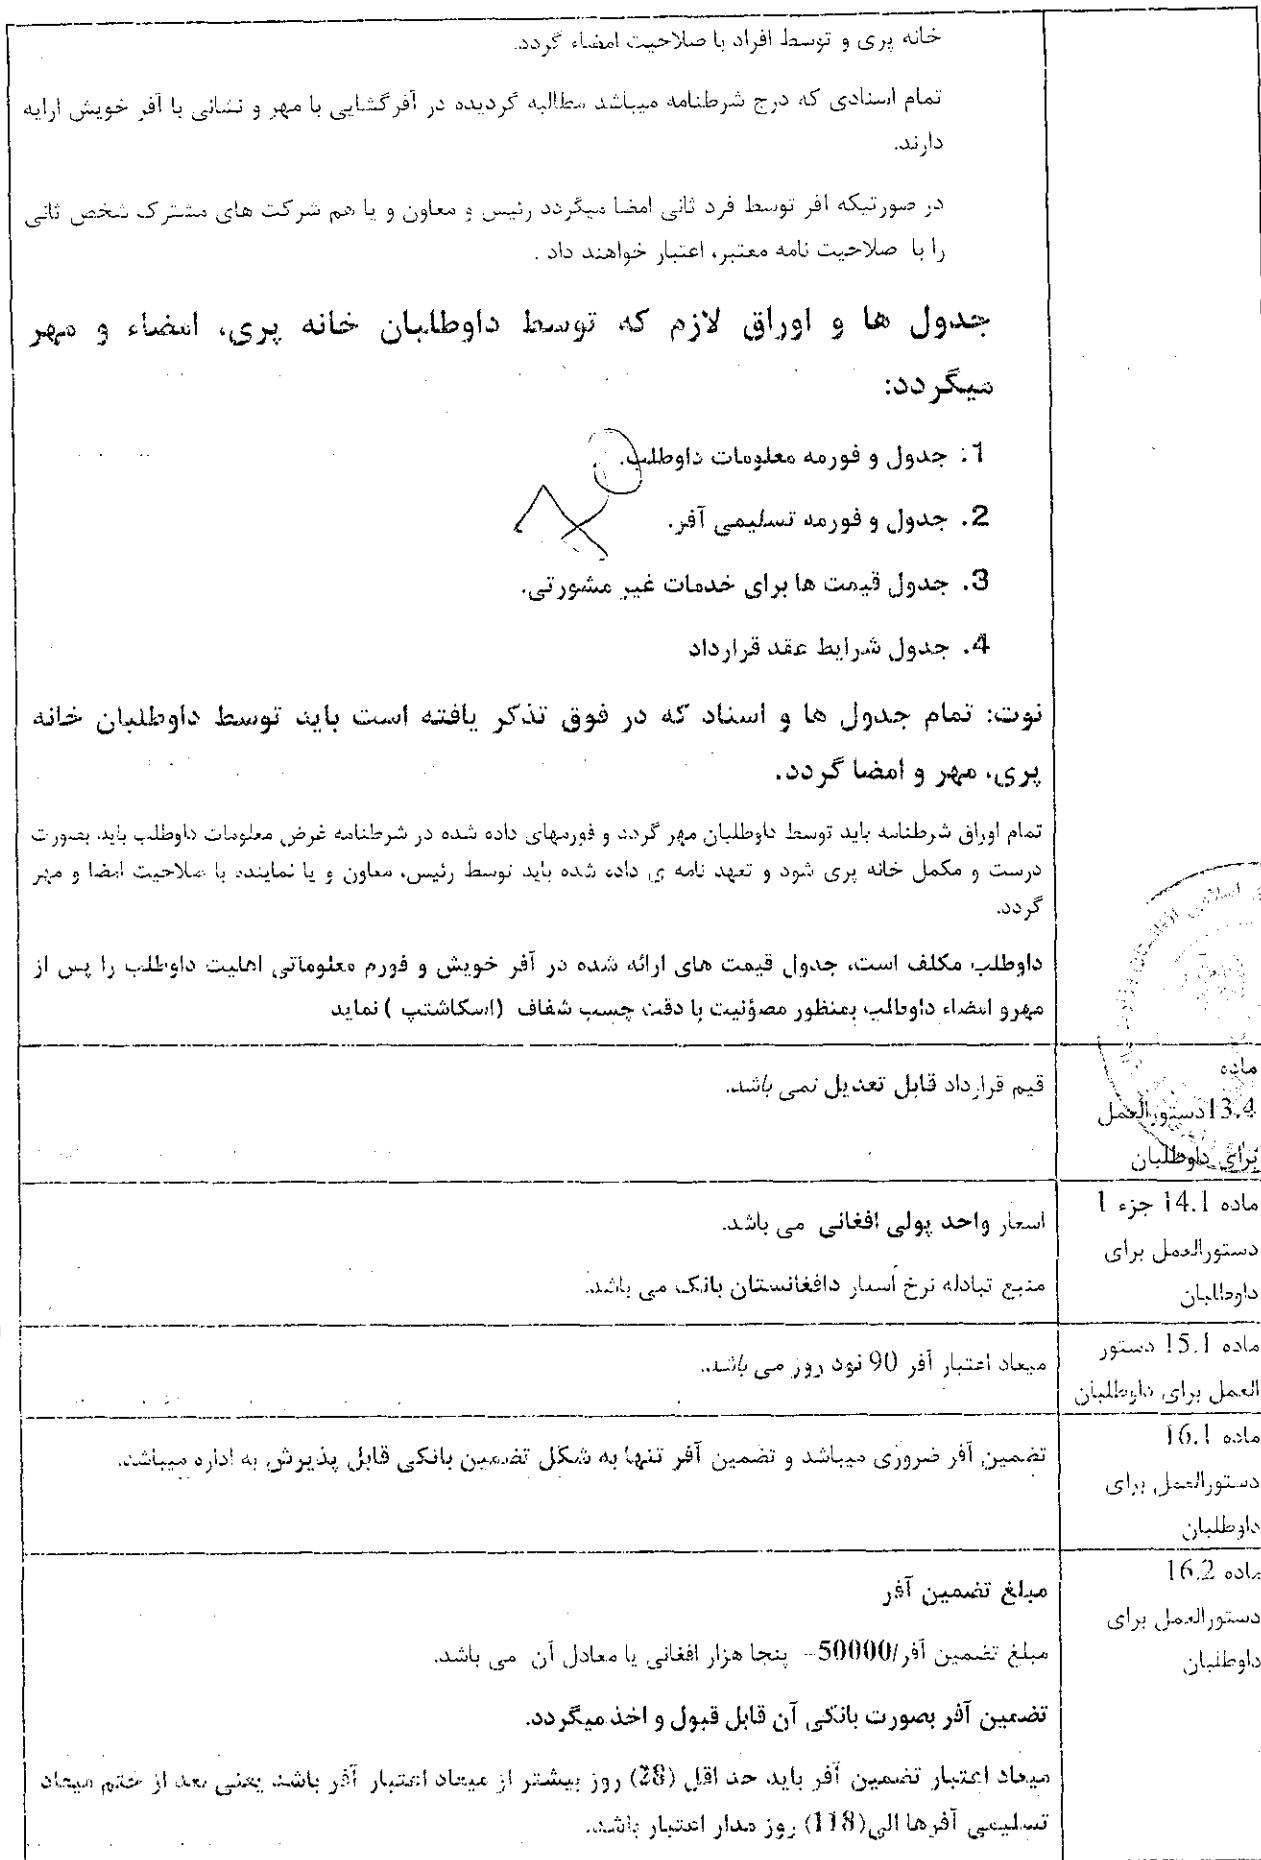 خانه پری و توسط افراد با صلاحیت امضاء گردد.
تمام اسنادی که درج شرطنامه میباشد مطالبه گردیده در آفرگشایی با مهر و نشانی با آفر خویش ارایه
دارند.
در صورتیکه افر توسط فرد ثانی امضا میگردد رئیس و معاون و یا هم شرکت های مشترک شخص ثانی
را با صلاحیت نامه معتبر، اعتبار خواهند داد .
جدول ها و اوراق لازم که توسط داوطلبان خانه پری، امضاء و مهر
میگردد:
1. جدول و فورمه معلومات داوطلب.
2. جدول و فورمه تسلیمی آفر.
3. جدول قیمت ها برای خدمات غیر مشورتی.
4. جدول شرایط عقد قرارداد
نوت: تمام جدول ها و اسناد که در فوق تذکر یافته است باید توسط داوطلبان خانه
پری، مهر و امضا گردد.
تمام اوراق شرطنامه باید توسط داوطلبان مهر گردد و فورمهای داده شده در شرطنامه غرض معلومات داوطلب باید بصورت
درست و مکمل خانه پری شود و تعهد نامه ی داده شده باید توسط رئیس، معاون و یا نماینده با صلاحیت امضا و مهر
گردد.
داوطلب مکلف است، جدول قیمت های ارائه شده در آفر خویش و فورم معلوماتی اهلیت داوطلب را پس از
مهرو امضاء داوطلب بمنظور مصؤنیت با دقت چسب شفاف (اسکاشتپ ) نماید
ماده
13.4دستورالعمل
برای داوطلبان
قیم قرارداد قابل تعدیل نمی باشد.
ماده 14.1 جزء 1
دستورالعمل برای
داوطلبان
اسعار واحد پولی افغانی می باشد.
منبع تبادله نرخ اسعار دافغانستان بانک می باشد.
ماده 15.1 دستور
العمل برای داوطلبان
میعاد اعتبار آفر 90 نود روز می باشد.
ماده 16.1
دستورالعمل برای
داوطلبان
تضمین آفر ضروری میباشد و تضمین آفر تنها به شکل تضمین بانکی قابل پذیرش به اداره میباشد.
ماده 16.2
دستورالعمل برای
داوطلبان
مبلغ تضمین آفر
مبلغ تضمین آفر/50000- پنجا هزار افغانی یا معادل آن می باشد.
تضمین آفر بصورت بانکی آن قابل قبول و اخذ میگردد.
میعاد اعتبار تضمین آفر باید حد اقل (28) روز بیشتر از میعاد اعتبار آفر باشد یعنی بعد از ختم میعاد
تسلیمی آفرها الی(118) روز مدار اعتبار باشد.